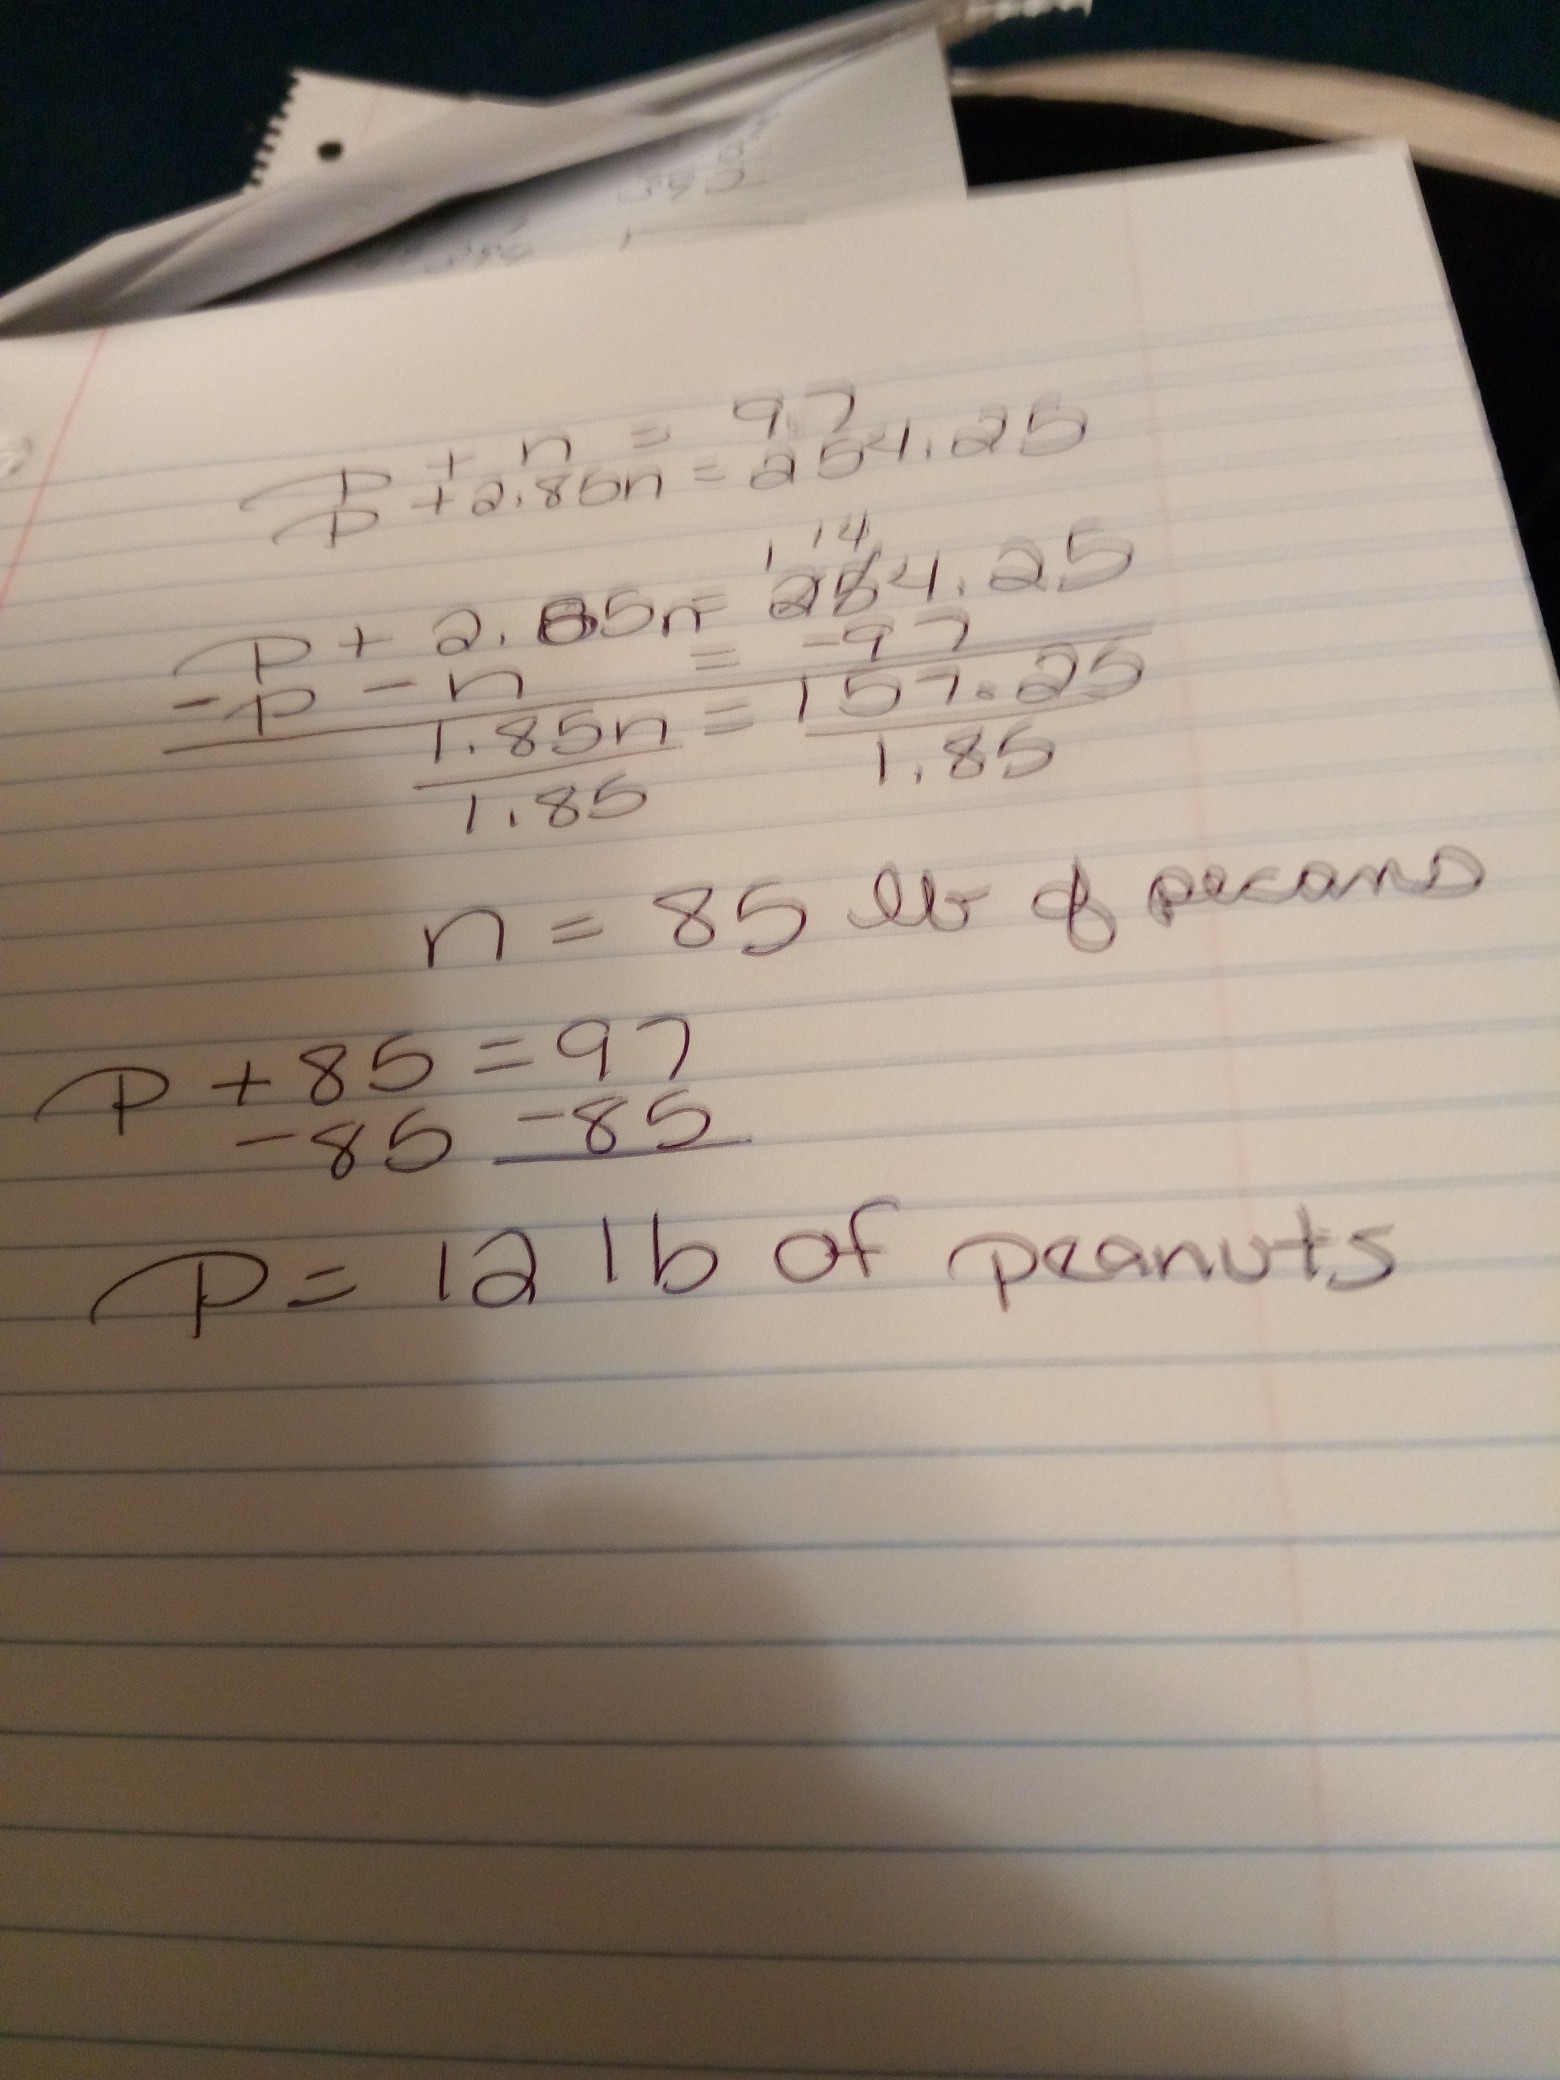 p + n = 97
p + 2.85n = 254.25
1 14
p + 2.85n = 254.25
-p - n = -97
1.85n = 157.25
1.85 1.85
n = 85 lb of pecans
p + 85 = 97
-85 -85
p = 12 lb of peanuts